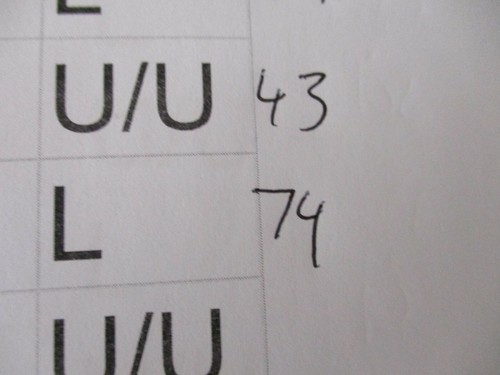 L
U/U 43
L 74
U/U